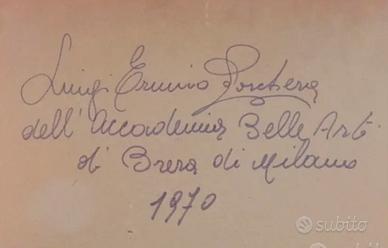 Luigi Erminio Porchera
dell'Accademia Belle Arti
di Brera di Milano
1970
subito